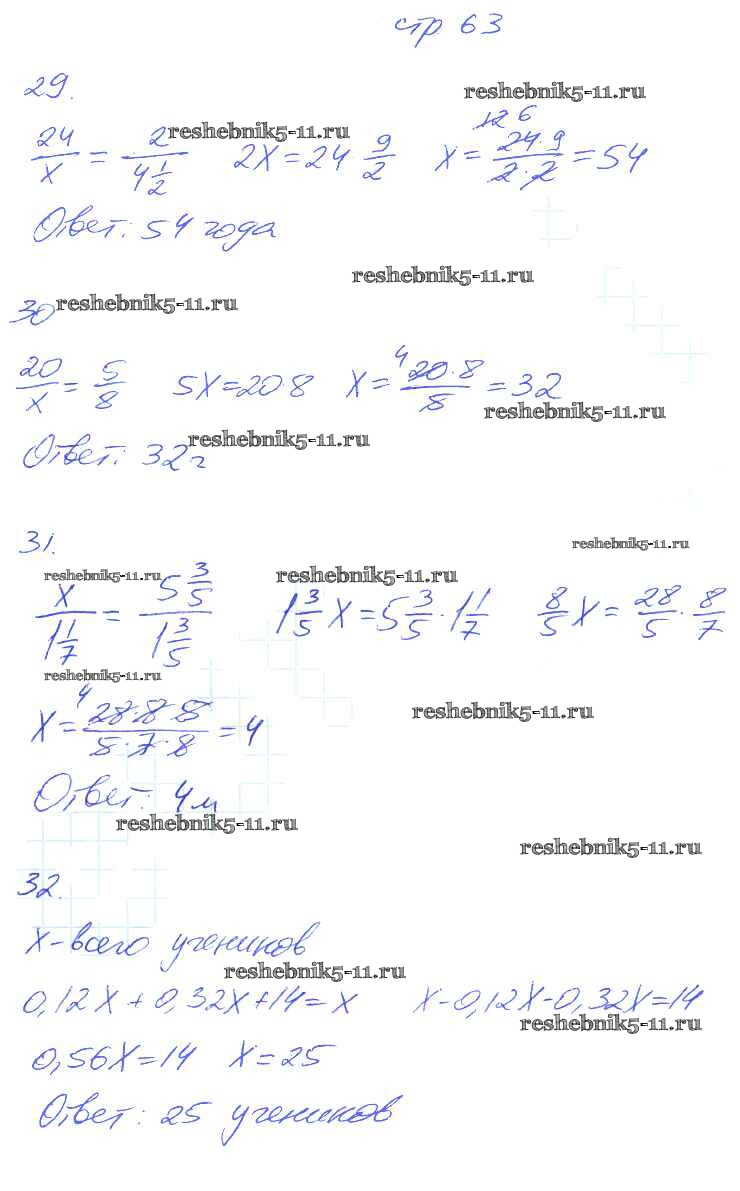 стр 63
29.
reshebnik5-11.ru
24/x = 2/4 1/2 reshebnik5-11.ru 2x = 24 9/2 x = 12 6 24·9/2·2 = 54
Ответ: 54 года
reshebnik5-11.ru
30 reshebnik5-11.ru
20/x = 5/8 5x = 20·8 x = 4 20·8/5 = 32
reshebnik5-11.ru
Ответ: 32 г reshebnik5-11.ru
31.
reshebnik5-11.ru
reshebnik5-11.ru reshebnik5-11.ru
x/1 1/7 = 5 3/5/1 3/5 1 3/5 x = 5 3/5 · 1 1/7 8/5 x = 28/5 · 8/7
reshebnik5-11.ru
x = 4 28·8·5/5·7·8 = 4 reshebnik5-11.ru
Ответ: 4м
reshebnik5-11.ru
reshebnik5-11.ru
32.
x - всего учеников
reshebnik5-11.ru
0,12x + 0,32x + 14 = x x - 0,12x - 0,32x = 14
reshebnik5-11.ru
0,56x = 14 x = 25
Ответ: 25 учеников